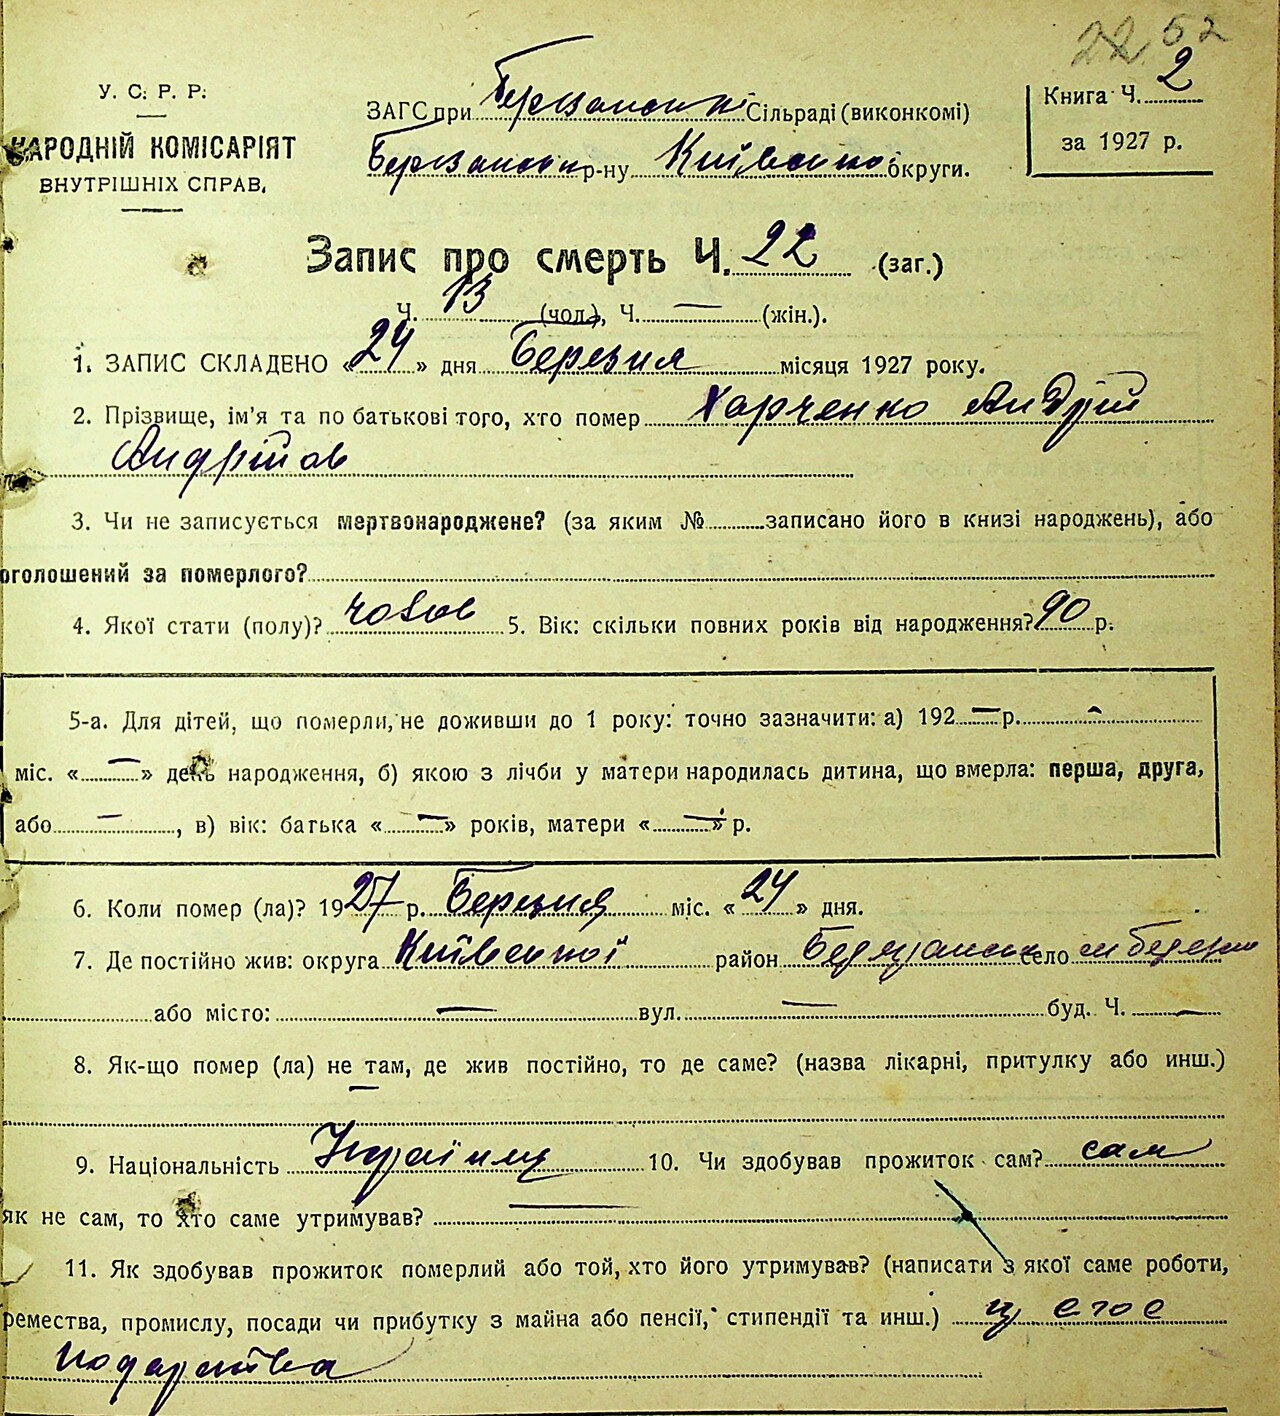 22 52
У. С. Р. Р.
НАРОДНІЙ КОМІСАРІЯТ
ВНУТРІШНІХ СПРАВ.
ЗАГС при Березанськ Сільраді (виконкомі)
Березанськ р-ну Київсько округи.
Книга Ч. 2
за 1927 р.
Запис про смерть Ч. 22 (заг.)
Ч. 13 (чол.), Ч. — (жін.).
1. ЗАПИС СКЛАДЕНО «24» дня Березня місяця 1927 року.
2. Прізвище, ім'я та по батькові того, хто помер Харченко Андрій
Андріїов
3. Чи не записується мертвонароджене? (за яким № записано його в книзі народжень), або
оголошений за померлого?
4. Якої стати (полу)? чолов 5. Вік: скільки повних років від народження? 90 р.
5-а. Для дітей, що померли, не доживши до 1 року: точно зазначити: а) 192 — р. -
міс. « — » день народження, б) якою з лічби у матери народилась дитина, що вмерла: перша, друга,
або —, в) вік: батька « — » років, матери « — » р.
6. Коли помер (ла)? 1927 р. Березня міс. «24» дня.
7. Де постійно жив: округа Київської район Березанськ село
або місто: — вул. — буд. Ч. —
8. Як-що помер (ла) не там, де жив постійно, то де саме? (назва лікарні, притулку або инш.)
—
9. Національність Українц 10. Чи здобував прожиток сам? сам
як не сам, то хто саме утримував? —
11. Як здобував прожиток померлий або той, хто його утримував? (написати з якої саме роботи,
ремества, промислу, посади чи прибутку з майна або пенсії, стипендії та инш.) з сгос
подарства